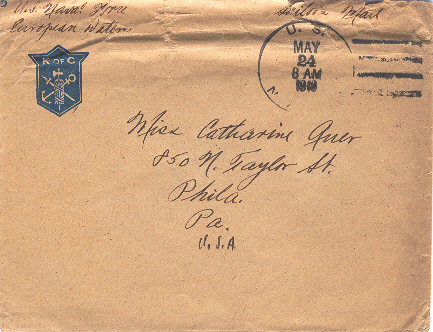 U.S. Naval
European Waters
Mail
K OF C
U. S.
MAY
24
8 AM
1919
N
Miss Catharine Auer
850 N. Taylor St.
Phila.
Pa.
U.S.A